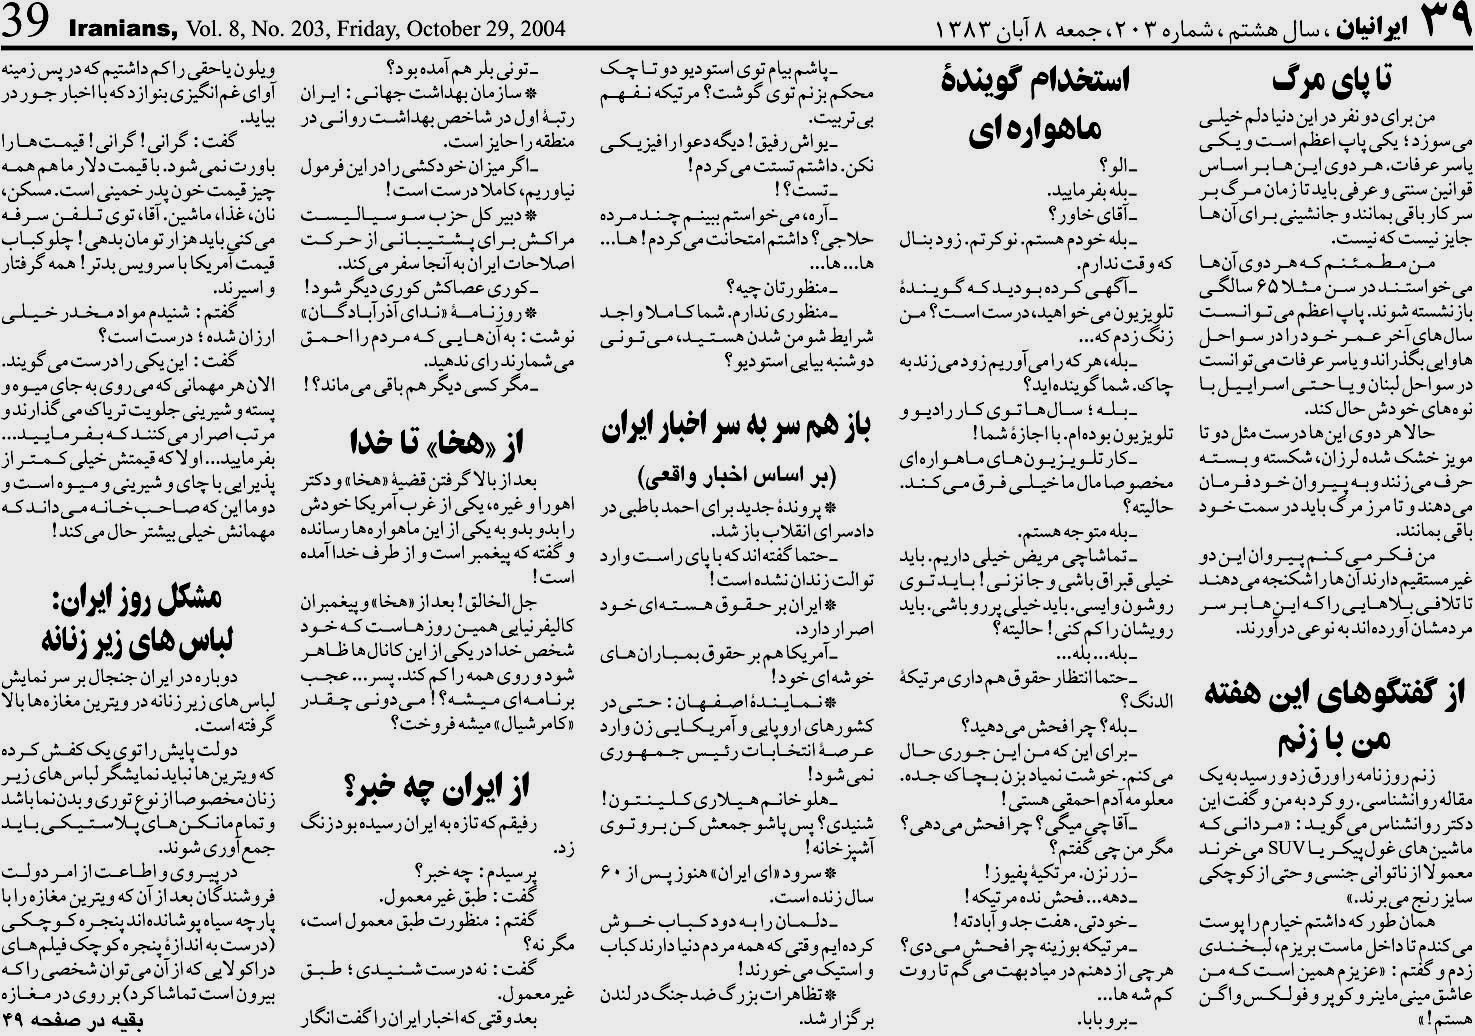 39 Iranians, Vol. 8, No. 203, Friday, October 29, 2004
۳۹ ایرانیان، سال هشتم، شماره ۲۰۳، جمعه ۸ آبان ۱۳۸۳
تا پای مرگ
من برای دو نفر در این دنیا دلم خیلی
می‌سوزد؛ یکی پاپ اعظم است و یکی
یاسر عرفات. هر دوی این‌ها بر اساس
قوانین سنتی و عرفی باید تا زمان مرگ بر
سر کار باقی بمانند و جانشینی برای آن‌ها
جایز نیست که نیست.
من مطمئنم که هر دوی آن‌ها
می‌خواستند در سن مثلا ۶۵ سالگی
بازنشسته شوند. پاپ اعظم می‌توانست
سال‌های آخر عمر خود را در سواحل
هاوایی بگذراند و یاسر عرفات می‌توانست
در سواحل لبنان و یا حتی اسراییل با
نوه‌های خودش حال کند.
حالا هر دوی این‌ها درست مثل دو تا
مویز خشک شده لرزان، شکسته و بسته
حرف می‌زنند و به پیروان خود فرمان
می‌دهند و تا مرز مرگ باید در سمت خود
باقی بمانند.
من فکر می‌کنم پیروان این دو
غیر مستقیم دارند آن‌ها را شکنجه می‌دهند
تا تلافی بلاهایی را که این‌ها بر سر
مردمشان آورده‌اند به نوعی درآورند.
از گفتگوهای این هفته
من با زنم
زنم روزنامه را ورق زد و رسید به یک
مقاله روانشناسی. رو کرد به من و گفت این
دکتر روانشناس می‌گوید: «مردانی که
ماشین‌های غول‌پیکر یا SUV می‌خرند
معمولا از ناتوانی جنسی و حتی از کوچکی
سایز رنج می‌برند.»
همان طور که داشتم خیارم را پوست
می‌کندم تا داخل ماست بریزم، لبخندی
زدم و گفتم: «عزیزم همین است که من
عاشق مینی ماینر و کوپر و فولکس واگن
هستم!»
استخدام گویندهٔ
ماهواره ای
ـ الو؟
ـ بله بفرمایید.
ـ آقای خاور؟
ـ بله خودم هستم. نوکرتم. زود بنال
که وقت ندارم.
ـ آگهی کرده بودید که گویندهٔ
تلویزیون می‌خواهید، درست است؟ من
زنگ زدم که...
ـ بله، هر که را می‌آوریم زود می‌زند به
چاک. شما گوینده‌اید؟
ـ بله؛ سال‌ها توی کار رادیو و
تلویزیون بوده‌ام. با اجازهٔ شما!
ـ کار تلویزیون‌های ماهواره‌ای
مخصوصا مال ما خیلی فرق می‌کند.
حالیته؟
ـ بله متوجه هستم.
ـ تماشاچی مریض خیلی داریم. باید
خیلی قبراق باشی و جا نزنی! باید توی
روشون وایسی. باید خیلی پررو باشی. باید
رویشان را کم کنی! حالیته؟
ـ بله... بله...
ـ حتما انتظار حقوق هم داری مرتیکهٔ
الدنگ؟
ـ بله؟ چرا فحش می‌دهید؟
ـ برای این که من این جوری حال
می‌کنم. خوشت نمیاد بزن بچاک جده.
معلومه آدم احمقی هستی!
ـ آقا چی میگی؟ چرا فحش می‌دهی؟
مگر من چی گفتم؟
ـ زر نزن. مرتکیهٔ پفیوز!
ـ دهه... فحش نده مرتیکه!
ـ خودتی. هفت جد و آبادته!
ـ مرتیکه بوزینه چرا فحش می‌دی؟
هر چی از دهنم در میاد بهت می‌گم تا روت
کم شه ها...
ـ برو بابا.
ـ پاشم بیام توی استودیو دو تا چک
محکم بزنم توی گوشت؟ مرتیکه نفهم
بی‌تربیت.
ـ یواش رفیق! دیگه دعوا را فیزیکی
نکن. داشتم تستت می‌کردم!
ـ تست؟!
ـ آره، می‌خواستم ببینم چند مرده
حلاجی؟ داشتم امتحانت می‌کردم! ها...
ها... ها...
ـ منظورتان چیه؟
ـ منظوری ندارم. شما کاملا واجد
شرایط شومن شدن هستید، می‌تونی
دوشنبه بیایی استودیو؟
باز هم سر به سر اخبار ایران
(بر اساس اخبار واقعی)
* پروندهٔ جدید برای احمد باطبی در
دادسرای انقلاب باز شد.
ـ حتما گفته‌اند که با پای راست وارد
توالت زندان نشده است!
* ایران بر حقوق هسته‌ای خود
اصرار دارد.
ـ آمریکا هم بر حقوق بمباران‌های
خوشه‌ای خود!
* نمایندهٔ اصفهان: حتی در
کشورهای اروپایی و آمریکایی زن وارد
عرصهٔ انتخابات رئیس جمهوری
نمی‌شود!
ـ هلو خانم هیلاری کلینتون!
شنیدی؟ پس پاشو جمعش کن برو توی
آشپزخانه!
* سرود «ای ایران» هنوز پس از ۶۰
سال زنده است.
ـ دلمان را به دود کباب خوش
کرده‌ایم وقتی که همه مردم دنیا دارند کباب
و استیک می‌خورند!
* تظاهرات بزرگ ضد جنگ در لندن
برگزار شد.
ـ تونی بلر هم آمده بود؟
* سازمان بهداشت جهانی: ایران
رتبهٔ اول در شاخص بهداشت روانی در
منطقه را حایز است.
ـ اگر میزان خودکشی را در این فرمول
نیاوریم، کاملا درست است!
* دبیر کل حزب سوسیالیست
مراکش برای پشتیبانی از حرکت
اصلاحات ایران به آنجا سفر می‌کند.
ـ کوری عصاکش کوری دیگر شود!
* روزنامهٔ «ندای آذرآبادگان»
نوشت: به آن‌هایی که مردم را احمق
می‌شمارند رای ندهید.
ـ مگر کسی دیگر هم باقی می‌ماند؟!
از «هخا» تا خدا
بعد از بالا گرفتن قضیهٔ «هخا» و دکتر
اهورا و غیره، یکی از غرب آمریکا خودش
را بدو بدو به یکی از این ماهواره‌ها رسانده
و گفته که پیغمبر است و از طرف خدا آمده
است!
جل‌الخالق! بعد از «هخا» و پیغمبران
کالیفرنیایی همین روزهاست که خود
شخص خدا در یکی از این کانال‌ها ظاهر
شود و روی همه را کم کند. پسر... عجب
برنامه‌ای میشه؟! می‌دونی چقدر
«کامرشیال» میشه فروخت؟
از ایران چه خبر؟
رفیقم که تازه به ایران رسیده بود زنگ
زد.
پرسیدم: چه خبر؟
گفت: طبق غیر معمول.
گفتم: منظورت طبق معمول است،
مگر نه؟
گفت: نه درست شنیدی؛ طبق
غیر معمول.
بعد وقتی که اخبار ایران را گفت انگار
ویلون یاحقی را کم داشتیم که در پس زمینه
آوای غم‌انگیزی بنوازد که با اخبار جور در
بیاید.
گفت: گرانی! گرانی! قیمت‌ها را
باورت نمی‌شود. با قیمت دلار ما هم همه
چیز قیمت خون پدر خمینی است. مسکن،
نان، غذا، ماشین. آقا، توی تلفن سرفه
می‌کنی باید هزار تومان بدهی! چلوکباب
قیمت آمریکا با سرویس بدتر! همه گرفتار
و اسیرند.
گفتم: شنیدم مواد مخدر خیلی
ارزان شده؛ درست است؟
گفت: این یکی را درست می‌گویند.
الان هر مهمانی که می‌روی به جای میوه و
پسته و شیرینی جلویت تریاک می‌گذارند و
مرتب اصرار می‌کنند که بفرمایید...
بفرمایید... اولا که قیمتش خیلی کمتر از
پذیرایی با چای و شیرینی و میوه است و
دوما این که صاحب‌خانه می‌داند که
مهمانش خیلی بیشتر حال می‌کند!
مشکل روز ایران:
لباس های زیر زنانه
دوباره در ایران جنجال بر سر نمایش
لباس‌های زیر زنانه در ویترین مغازه‌ها بالا
گرفته است.
دولت پایش را توی یک کفش کرده
که ویترین‌ها نباید نمایشگر لباس‌های زیر
زنان مخصوصا از نوع توری و بدن‌نما باشد
و تمام مانکن‌های پلاستیکی باید
جمع‌آوری شوند.
در پیروی و اطاعت از امر دولت
فروشندگان بعد از آن که ویترین مغازه را با
پارچه سیاه پوشانده‌اند پنجره کوچکی
(درست به اندازهٔ پنجره کوچک فیلم‌های
دراکولایی که از آن می‌توان شخصی را که
بیرون است تماشا کرد) بر روی در مغازه
بقیه در صفحه ۴۹